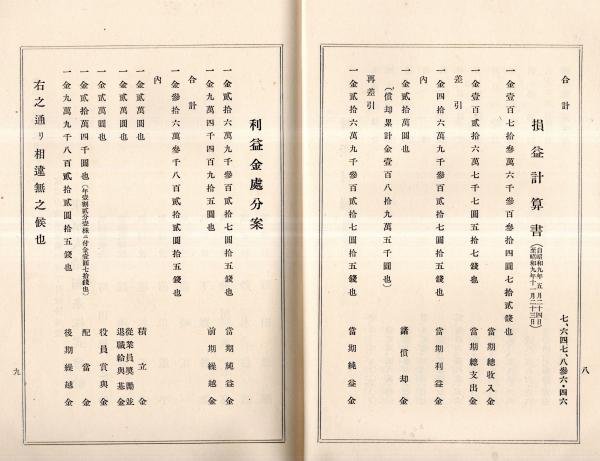 八
合計 七、六四七、八參六・四六
損益計算書 (自昭和九年五月二十四日
至昭和九年十一月二十三日)
一金壹百七拾參萬六千參百參拾四圓七拾貳錢也 當期總收入金
一金壹百貳拾六萬七千七圓五拾七錢也 當期總支出金
差引
一金四拾六萬九千參百貳拾七圓拾五錢也 當期利益金
內
一金貳拾萬圓也 諸償却金
(償却累計金壹百八拾九萬五千圓也)
再差引
一金貳拾六萬九千參百貳拾七圓拾五錢也 當期純益金
利益金處分案
一金貳拾六萬九千參百貳拾七圓拾五錢也 當期純益金
一金九萬四千四百九拾五圓也 前期繰越金
合計
一金參拾六萬參千八百貳拾貳圓拾五錢也
內
一金貳萬圓也 積立金
一金貳萬圓也 從業員奬勵並
退職給與基金
一金貳萬圓也 役員賞與金
一金貳拾萬四千圓也 配當金
一金九萬九千八百貳拾貳圓拾五錢也 後期繰越金
右之通リ相違無之候也
九